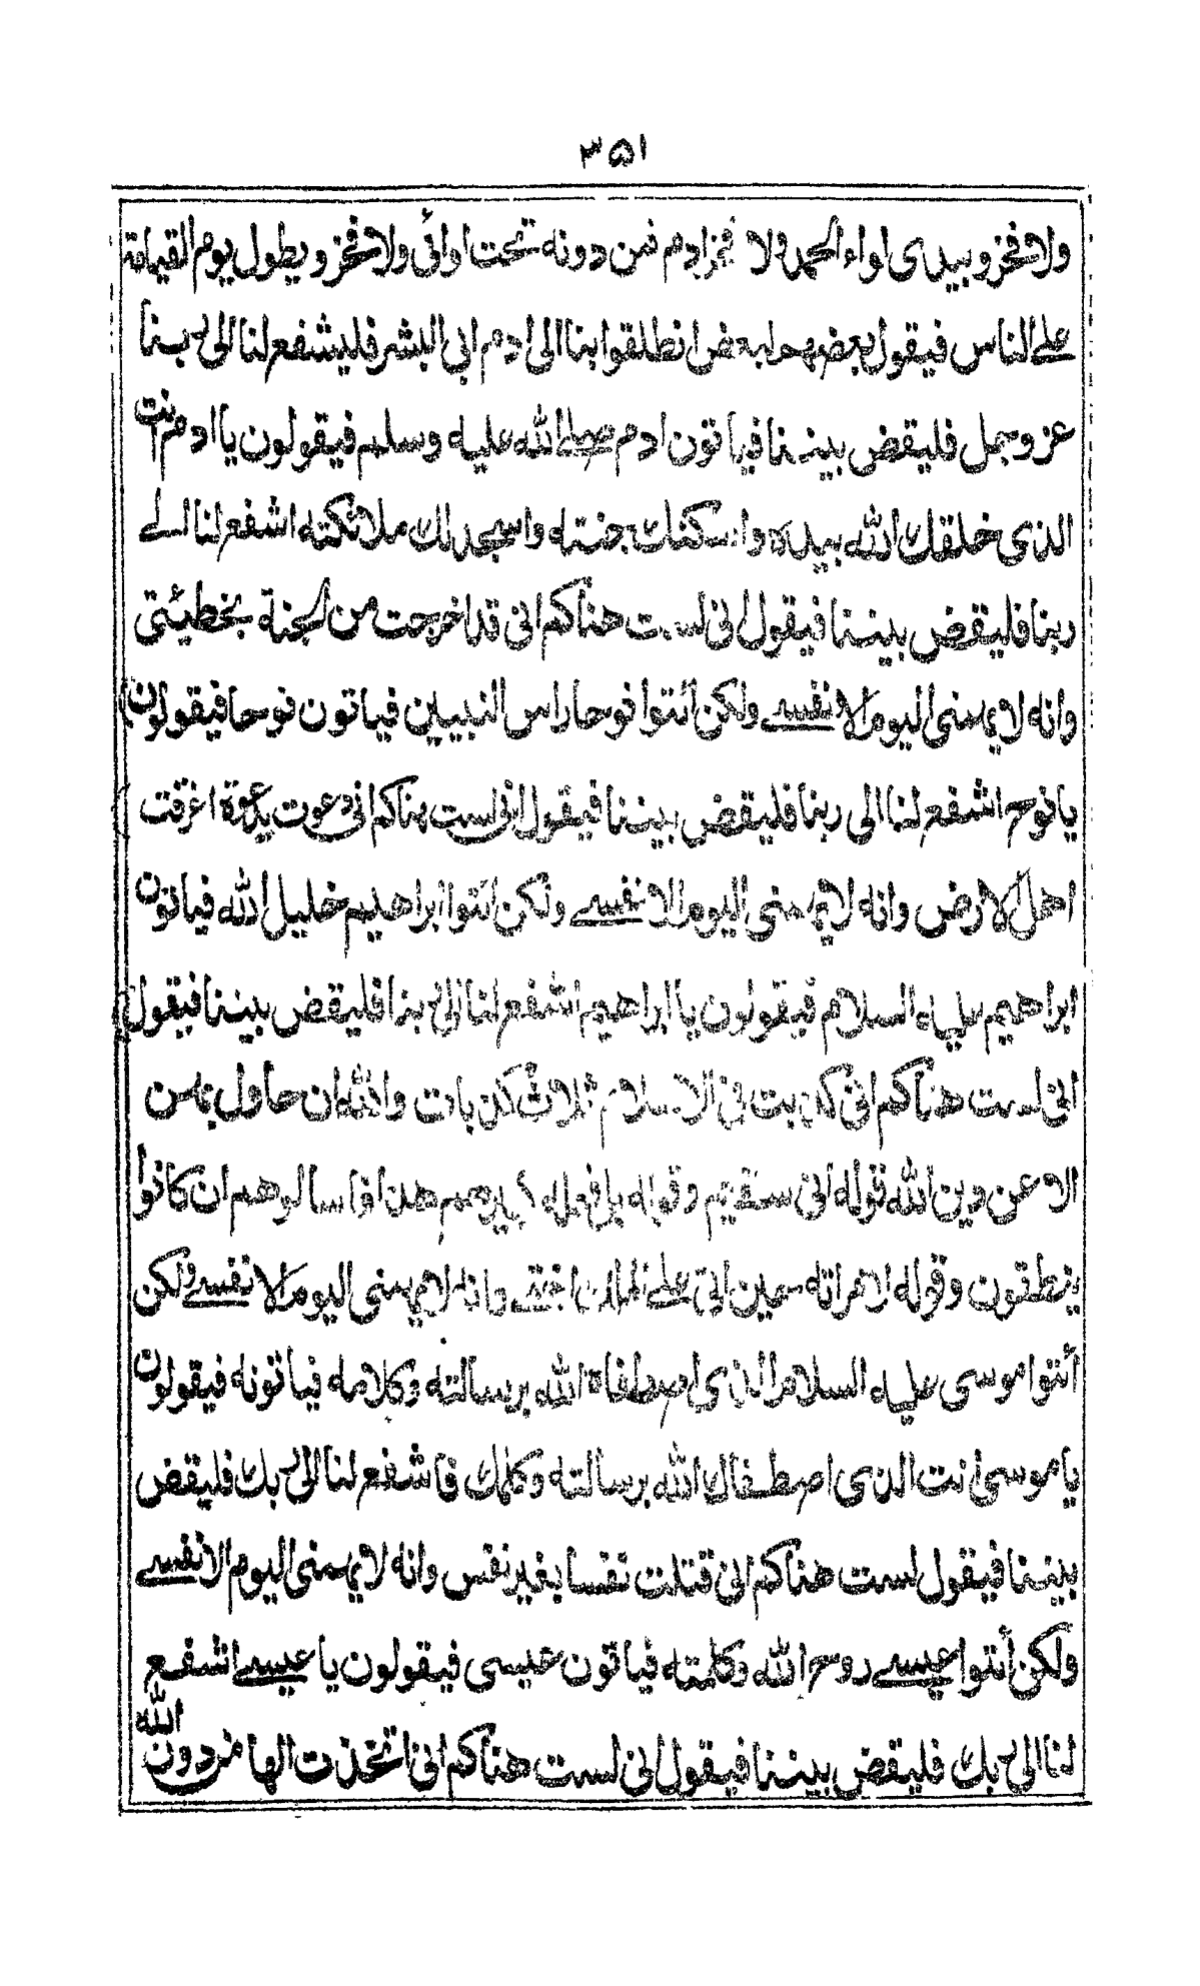 ٣٥١
ولا فخر وبيدى لواء الحمد ولا فخر ادم فمن دونه تحت لوائى ولا فخر ويطول يوم القيامة
على الناس فيقول بعضهم لبعض انطلقوا بنا الى ادم ابى البشر فليشفع لنا الى ربنا
عز وجل فليقض بيننا فياتون ادم صلى الله عليه وسلم فيقولون يا ادم انت
الذى خلقك الله بيده واسكنك جنته واسجد لك ملائكته اشفع لنا الى
ربنا فليقض بيننا فيقول انى لست هناكم انى قد اخرجت من الجنة بخطيئتى
وانه لا يهمنى اليوم الا نفسى ولكن ائتوا نوحا راس النبيين فياتون نوحا فيقولون
يا نوح اشفع لنا الى ربنا فليقض بيننا فيقول انى لست هناكم انى دعوت بدعوة اغرقت
اهل الارض وانه لا يهمنى اليوم الا نفسى ولكن ائتوا ابراهيم خليل الله فياتون
ابراهيم عليه السلام فيقولون يا ابراهيم اشفع لنا الى ربنا فليقض بيننا فيقول
انى لست هناكم انى كذبت فى الاسلام ثلاث كذبات والله ان حاول بهن
الا عن دين الله قوله انى سقيم وقوله بل فعله كبيرهم هذا فاسالوهم ان كانوا
ينطقون وقوله لامراته حين اتى على الملك اختى وانه لا يهمنى اليوم الا نفسى ولكن
ائتوا موسى عليه السلام الذى اصطفاه الله برسالته وكلامه فياتونه فيقولون
يا موسى انت الذى اصطفاك الله برسالته وكلمك فاشفع لنا الى ربك فليقض
بيننا فيقول لست هناكم انى قتلت نفسا بغير نفس وانه لا يهمنى اليوم الا نفسى
ولكن ائتوا عيسى روح الله وكلمته فياتون عيسى فيقولون يا عيسى اشفع
لنا الى ربك فليقض بيننا فيقول انى لست هناكم انى اتخذت الها من دون الله